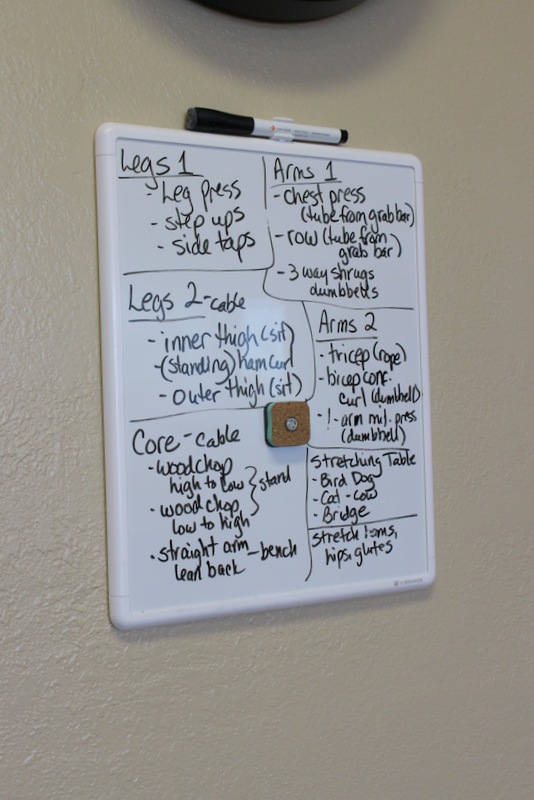 Legs 1
- Leg press
- step ups
- side taps
Arms 1
- chest press
(tube from grab bar)
- row (tube from
grab bar)
- 3 way shrugs
dumbbells
Legs 2 - cable
- inner thigh (sit)
- (standing) ham curl
- outer thigh (sit)
Arms 2
- tricep (rope)
- bicep conc.
curl (dumbbell)
- 1-arm mil. press
(dumbbell)
Core - cable
- woodchop
high to low
- wood chop
low to high
stand
- straight arm - bench
lean back
Stretching Table
- Bird Dog
- Cat - cow
- Bridge
stretch hams,
hips, glutes